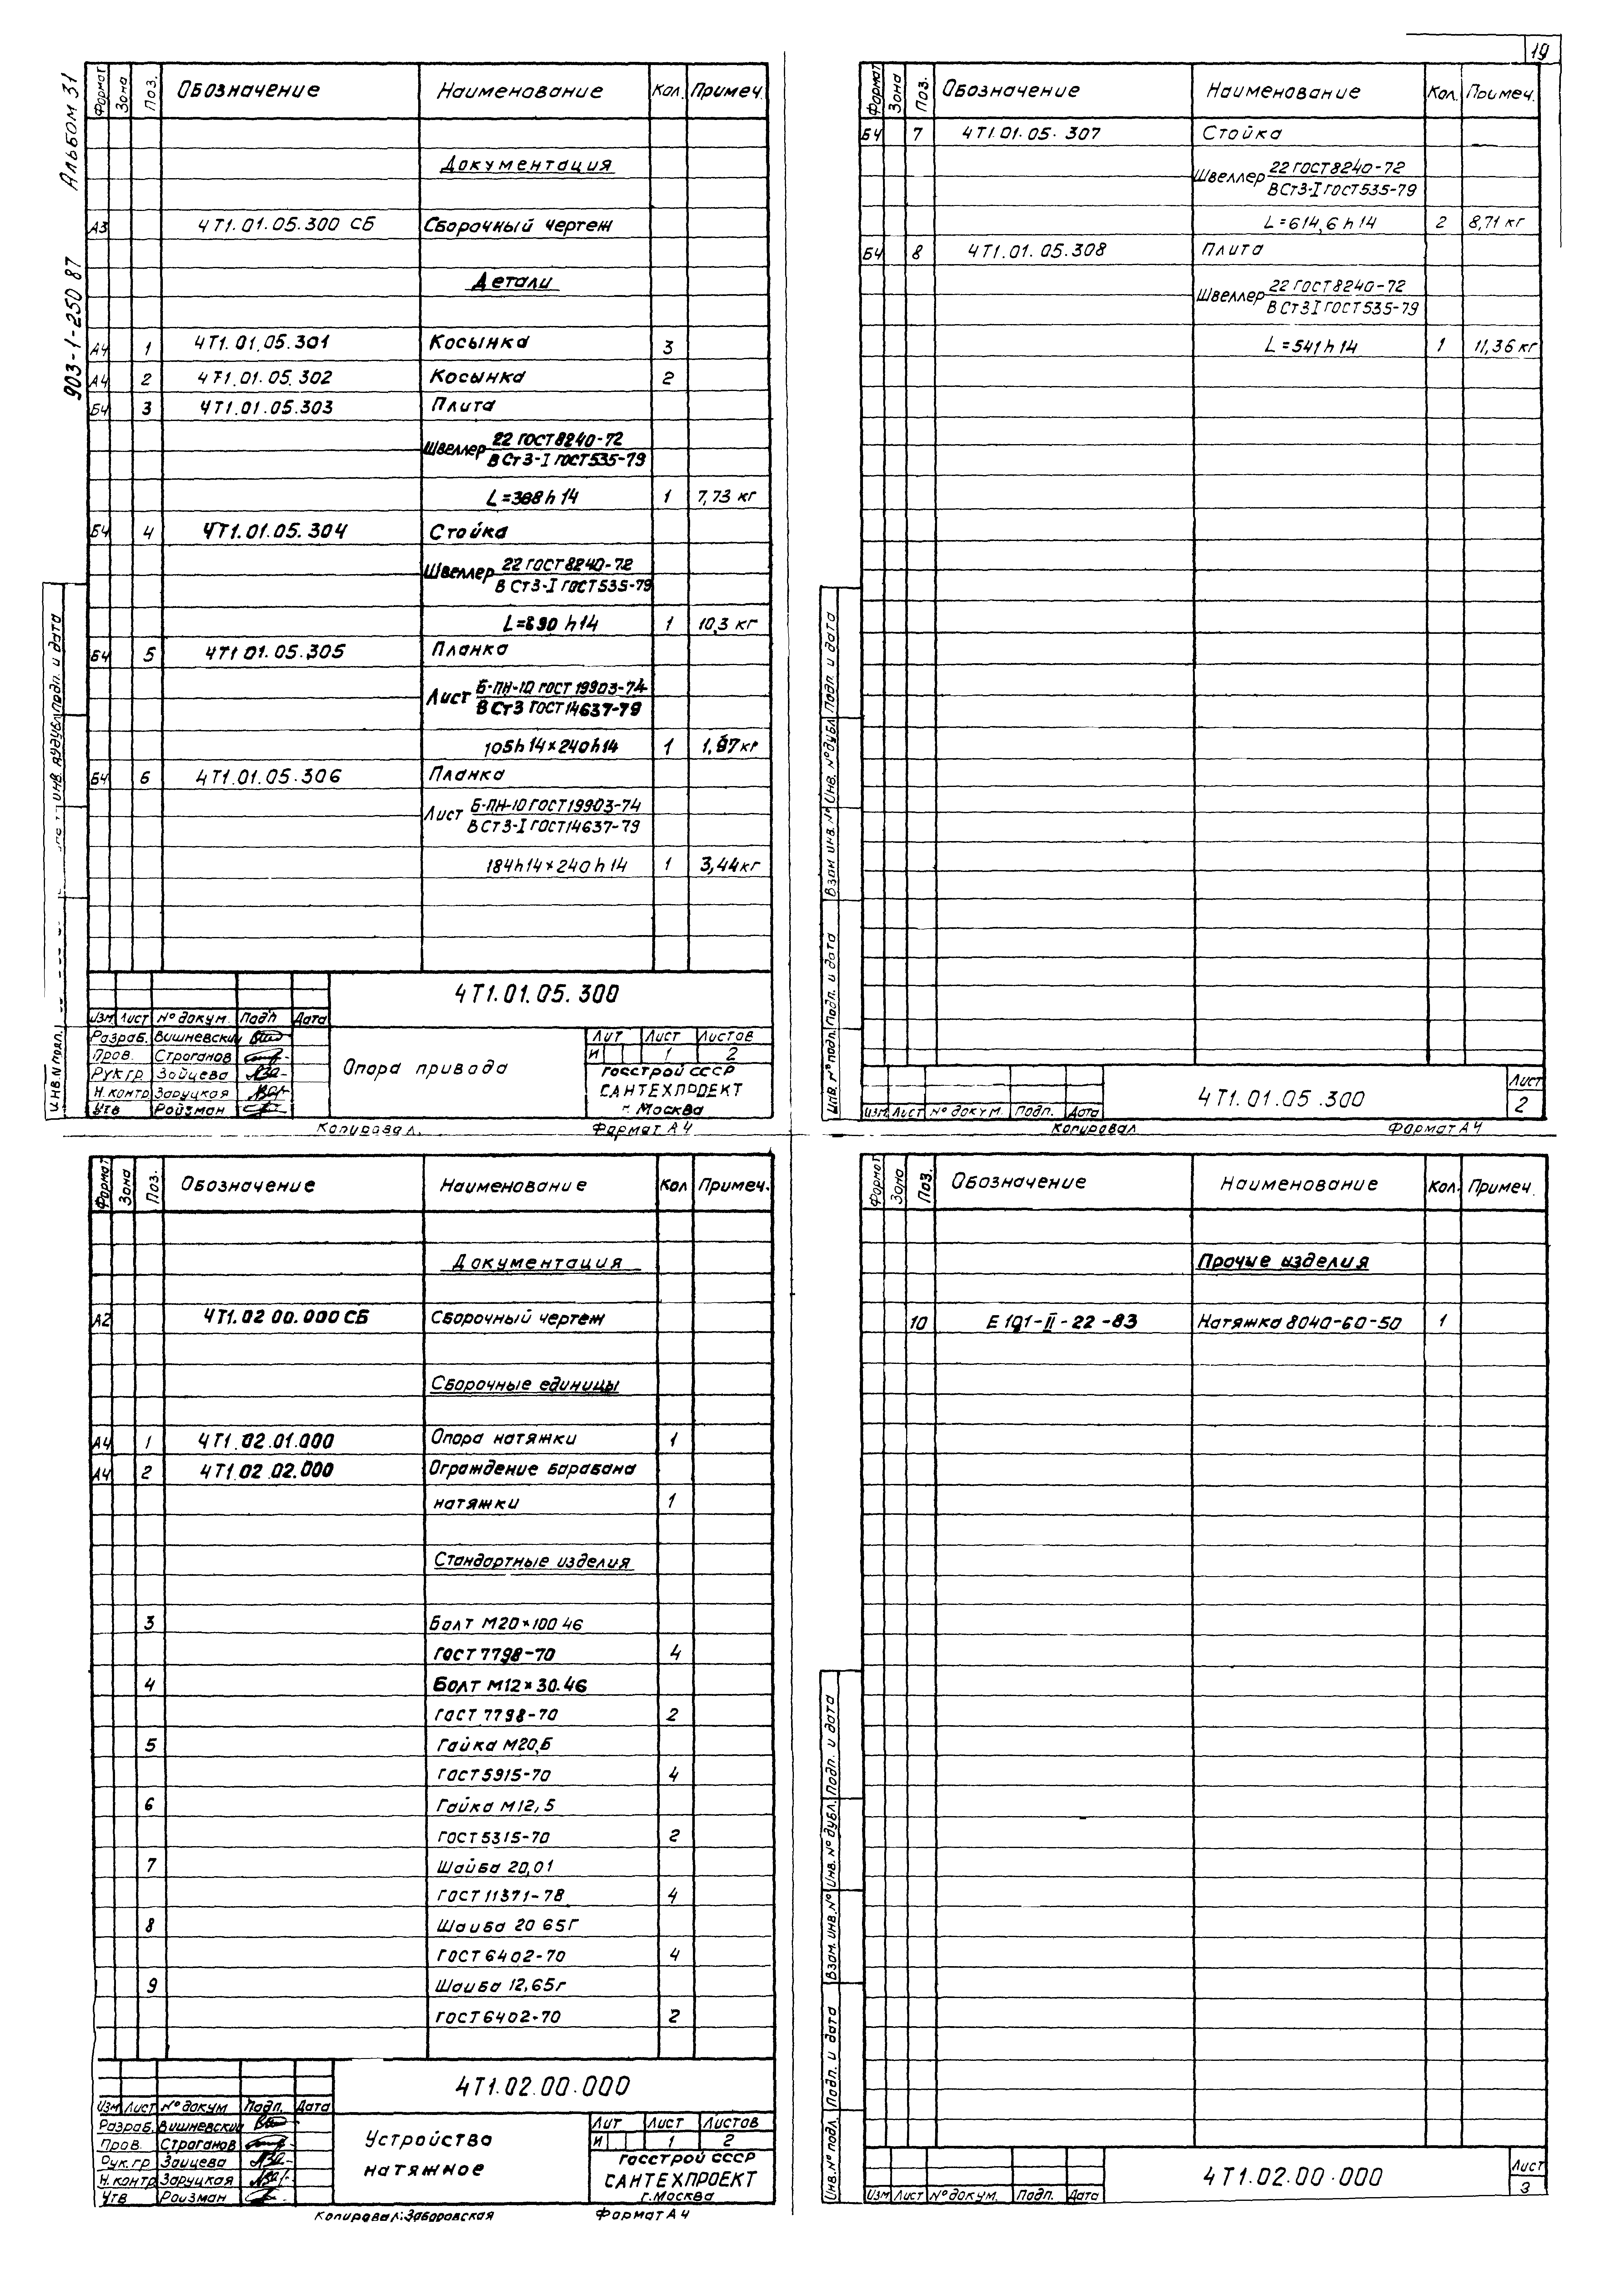 19
Альбом 31
903-1-250 87
Формат Зона Поз. Обозначение Наименование Кол. Примеч.
Документация
А3 4Т1.01.05.300 СБ Сборочный чертеж
Детали
А4 1 4Т1.01.05.301 Косынка 3
А4 2 4Т1.01.05.302 Косынка 2
Б4 3 4Т1.01.05.303 Плита
Швеллер 22 ГОСТ 8240-72
В Ст 3-I ГОСТ 535-79
L=368 h 14 1 7,73 кг
Б4 4 4Т1.01.05.304 Стойка
Швеллер 22 ГОСТ 8240-72
В Ст 3-I ГОСТ 535-79
h14 1 10,3 кг
Б4 5 4Т1 01.05.305 Планка
Лист Б-ПН-10 ГОСТ 19903-74
В Ст 3 ГОСТ 14637-79
105h14×240h14 1
Б4 6 4Т1.01.05.306 Планка
Лист Б-ПН-10 ГОСТ 19903-74
В Ст 3-I ГОСТ 14637-79
184h14×240h14 1 3,44кг
4Т1.01.05.300
Изм Лист № докум. Подп Дата
Разраб. Вишневский
Пров. Строганов
Рук гр Зайцева
Н.контр Заруцкая
Утв Ройзман
Опора привода
Лит Лист Листов
И 1 2
Госстрой СССР
САНТЕХПРОЕКТ
г. Москва
Копировал. Формат А4
Подп. и дата
Инв.N подл.
Формат Зона Поз. Обозначение Наименование Кол. Примеч.
Б4 7 4Т1.01.05.307 Стойка
Швеллер 22 ГОСТ 8240-72
В Ст 3-I ГОСТ 535-79
L=614,6 h 14 2 8,71 кг
Б4 8 4Т1.01.05.308 Плита
Швеллер 22 ГОСТ 8240-72
В Ст 3 I ГОСТ 535-79
L=541 h 14 1 11,36 кг
Подп. и дата
Инв. № дубл.
Взам инв. №
Подп. и дата
Инв. № подл.
Изм Лист № докум. Подп. Дата
4Т1.01.05.300
Лист
2
Копировал Формат А4
Формат Зона Поз. Обозначение Наименование Кол Примеч.
Документация
А2 4Т1.02 00.000 СБ Сборочный чертеж
Сборочные единицы
А4 1 4Т1.02.01.000 Опора натяжки 1
А4 2 4Т1.02.02.000 Ограждение барабана
натяжки 1
Стандартные изделия
3 Болт М20×100 46
ГОСТ 7798-70 4
4 Болт М12×30.46
ГОСТ 7798-70 2
5 Гайка М20,5
ГОСТ 5915-70 4
6 Гайка М12,5
ГОСТ 5315-70 2
7 Шайба 20,01
ГОСТ 11371-78 4
8 Шайба 20 65Г
ГОСТ 6402-70 4
9 Шайба 12,65г
ГОСТ 6402-70 2
4Т1.02.00.000
Изм Лист № докум Подп. Дата
Разраб. Вишневский
Пров. Строганов
Рук.гр Зайцева
Н.контр Заруцкая
Утв Ройзман
Устройство
натяжное
Лит Лист Листов
И 1 2
Госстрой СССР
САНТЕХПРОЕКТ
г.Москва
Копировал: Заборовская Формат А4
Формат Зона Поз. Обозначение Наименование Кол. Примеч.
Прочие изделия
10 Е 191-II-22-83 Натяжка 8040-60-50 1
Подп. и дата
Инв. № дубл.
Взам. инв. №
Подп. и дата
Инв. № подл.
Изм Лист № докум. Подп. Дата
4Т1.02.00.000
Лист
3